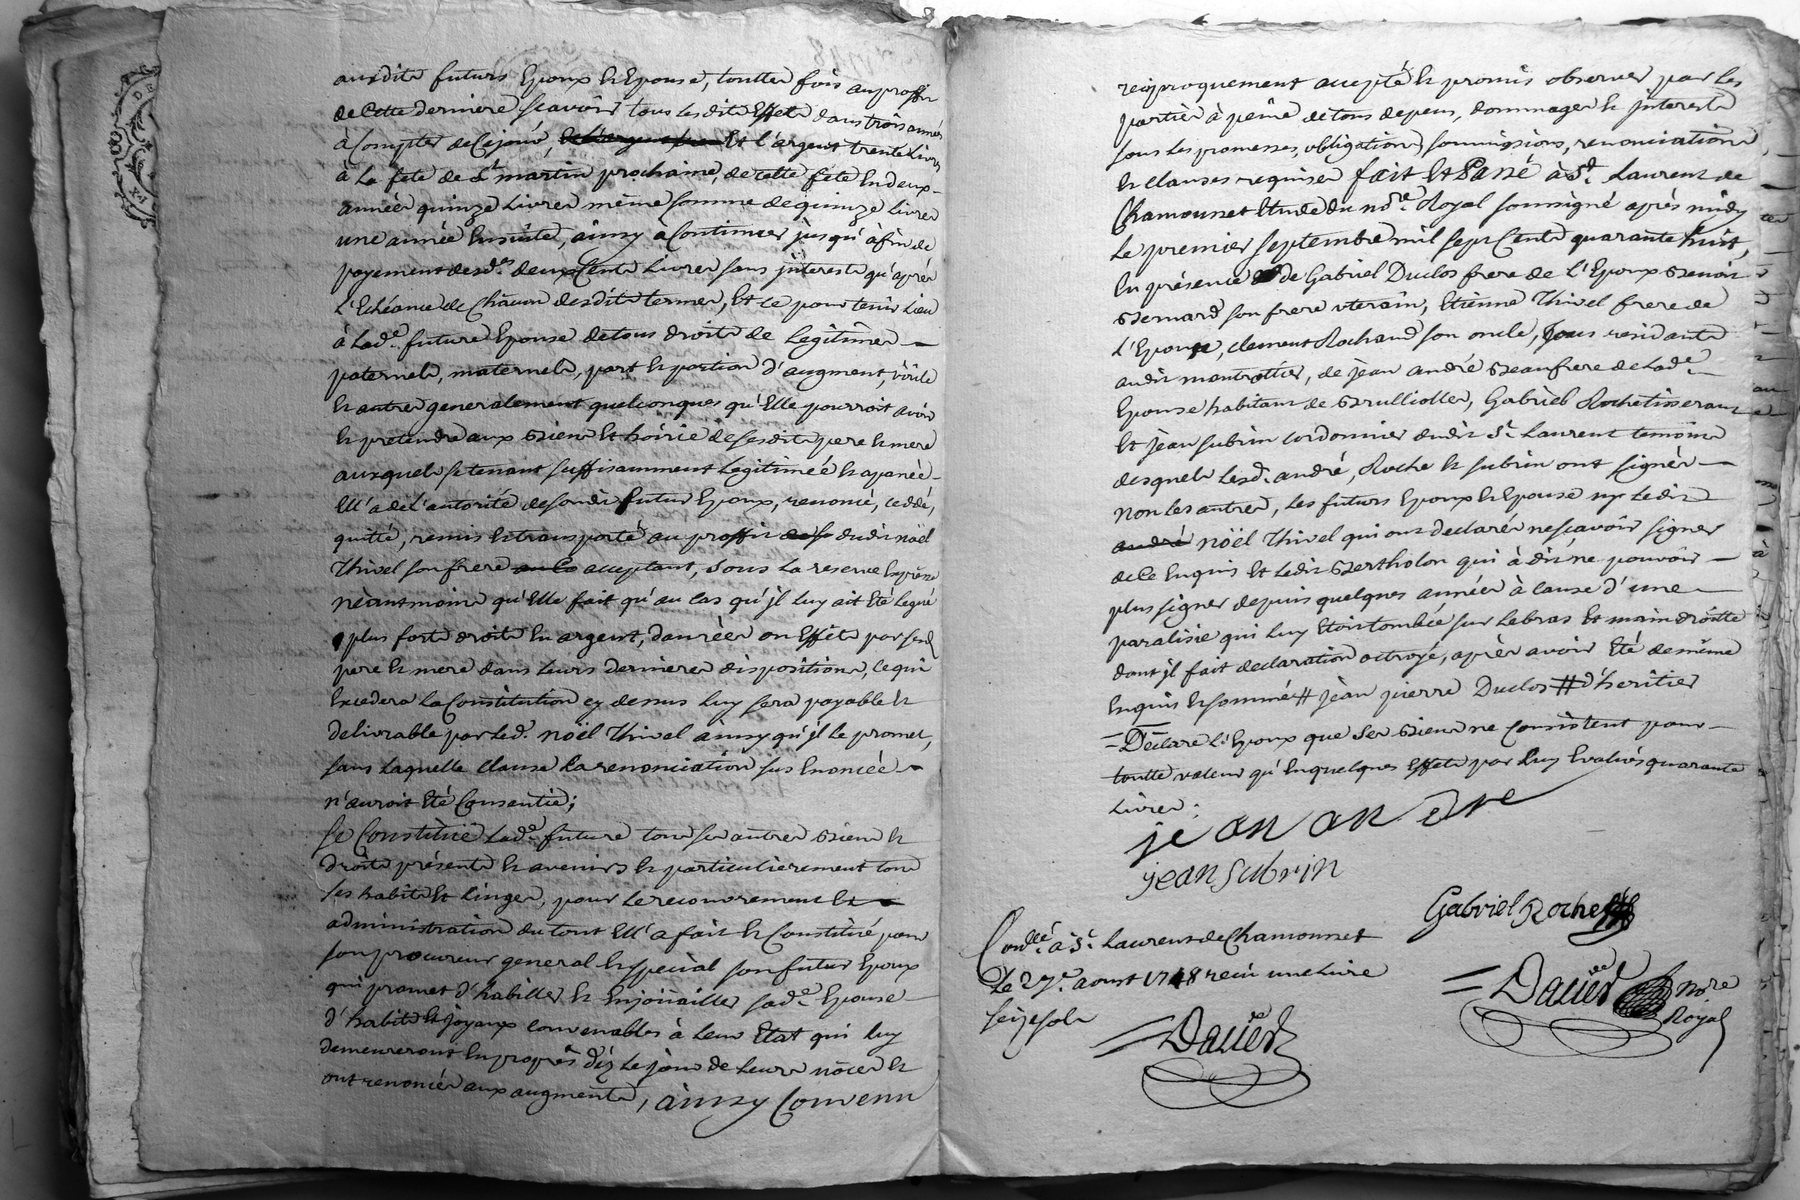 ausdits futurs Epoux et Epouse, touttes fois au proffit
de cette derniere scavoir tous lesdits Effets dans trois années
à compter de ce jour, Et l'argent trente Livres
à la fete de St martin prochaine, de cette fete En deux
années quinze Livres même somme de quinze Livres
une année Ensuite, ainsy a continuer jusqu'à fin de
payement desds. deux Cents Livres sans jnterests qu'après
l'Echéance de châcun desdits termes, Et ce pour tenir Lieu
à lade. future Epouse de tous droits de Legitimes
paternels, maternels, part et portion d'augment,
et autres generalement quelconques qu'Elle pourroit avoir
et pretendre aux Biens Et hoirie de sesdits pere et mere
auxquels se tenant suffisamment Legitimée et apanée
Ell'a de l'autorité de sondit futur Epoux, renoncé, ceddé,
quitté, remis et transporté au proffit dudit nöel
Thivel son frere acceptant, sous La reserve Expresse
néantmoins qu'Elle fait qu'au cas qu'jl luy ait Eté Legué
plus forts droits En argent, danrées ou Effets par sesds
pere et mere dans leurs dernieres dispositions, ce qui
Excedera la Constitution cy dessus luy sera payable et
delivrable par led. nöel Thivel ainsy qu'jl le promet,
sans laquelle clause la renonciation sus Enoncée
n'auroit Eté Consentie;
Se Constitüe lade. future tous ses autres Biens et
droits présents et avenirs et particulierement tous
ses habits Et Linges, pour le recouvrement Et
administration du tout Ell'a fait et Constitué pour
son procureur general et special son futur Epoux
qui promet d'habiller et Enjoüailler sade. Epouse
d'habits et joyaux convenables à leur Etat qui luy
demeureront En propres dèz le jour de leurs nôces et
ont renoncés aux augments, ainsy Convenu
reciproquement accepté et promis observer par les
parties à peine de tous depens, dommages et jnterests
sous les promesses, obligations soumissions, renonciations
et clauses requises fait Et Passé à St. Laurent de
Chamousset Etude du nore. Royal soussigné après midy
le premier septembre mil sept Cents quarante huit,
En présence de Gabriel Duclos frere de l'Epoux Benoit
Bernard son frere uterain, Etienne Thivel frere de
l'Epouse, clement Rochand son oncle, tous residants
audit montrottier, de jean andré Beaufrere de lade.
Epouse habitant de Brulliolles, Gabriel Roche tisserant
Et jean subrin cordonnier dudit St. Laurent temoins
desquels lesd. andré, Roche et subrin ont signés
non les autres, les futurs Epoux et Epouse ny ledit
andré nöel Thivel qui ont declarés ne scavoir signer
de ce Enquis Et ledit Bertholon qui à dit ne pouvoir
plus signer depuis quelques années à cause d'une
paralisie qui luy Etoit tombée sur le bras Et main droitte
dont jl fait declaration octroyé, après avoir Eté de même
Enquis et sommé # jean pierre Duclos # d'heritier
= Déclare l'Epoux que ses Biens ne consistent pour
toutte valeur qu'En quelques Effets par luy Evalués quarante
Livres;
jean andre
jean subrin
Gabriel Roche
Conllé. à St. Laurent de Chamousset
le 27e. aoust 1748 reçu une Livre
seize sols
= Daviet
= Daviet nore
Royal